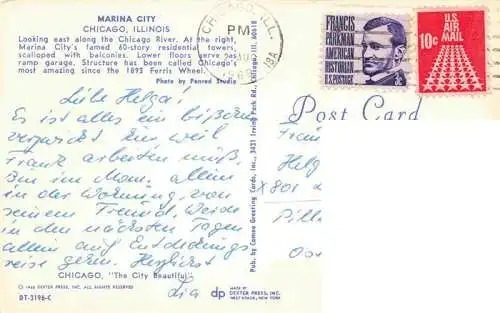 MARINA CITY
CHICAGO, ILLINOIS
Looking east along the Chicago River. At the right,
Marina City's famed 60-story residential towers,
scalloped with balconies. Lower floors serve as
ramp garage. Structure has been called Chicago's
most amazing since the 1893 Ferris Wheel.
Photo by Penrod Studio
CHICAGO, ILL.
PM
1968
FRANCIS
PARKMAN
AMERICAN
HISTORIAN
U.S. POSTAGE
3c
U.S.
AIR
MAIL
10c
Liebe Helga!
Es ist alles ein bißchen
verzwickt ein weil
Frank arbeiten muß.
Bin im Mom. allein
in der Wohnung von
seinem Freund. Werde
in den nächsten Tagen
allein auf Entdeckungs
reise gehn. Herzlichst
Lia
Post Card
Helg
X801
Pilla
CHICAGO, "The City Beautiful"
© 1966 DEXTER PRESS, INC. ALL RIGHTS RESERVED
DT-3196-C
dp
MADE BY
DEXTER PRESS, INC.
WEST NYACK, NEW YORK
Pub. by Cameo Greeting Cards, Inc., 3431 Irving Park Rd., Chicago, Ill. 60618